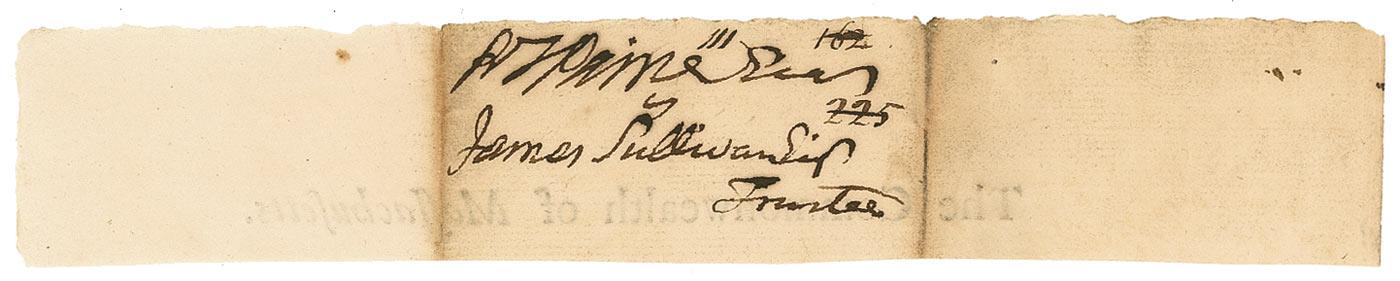 162
RTPaine Esqr
v
225
James Sullivan Esq
Trustee
The Commonwealth of Maſſachuſetts.